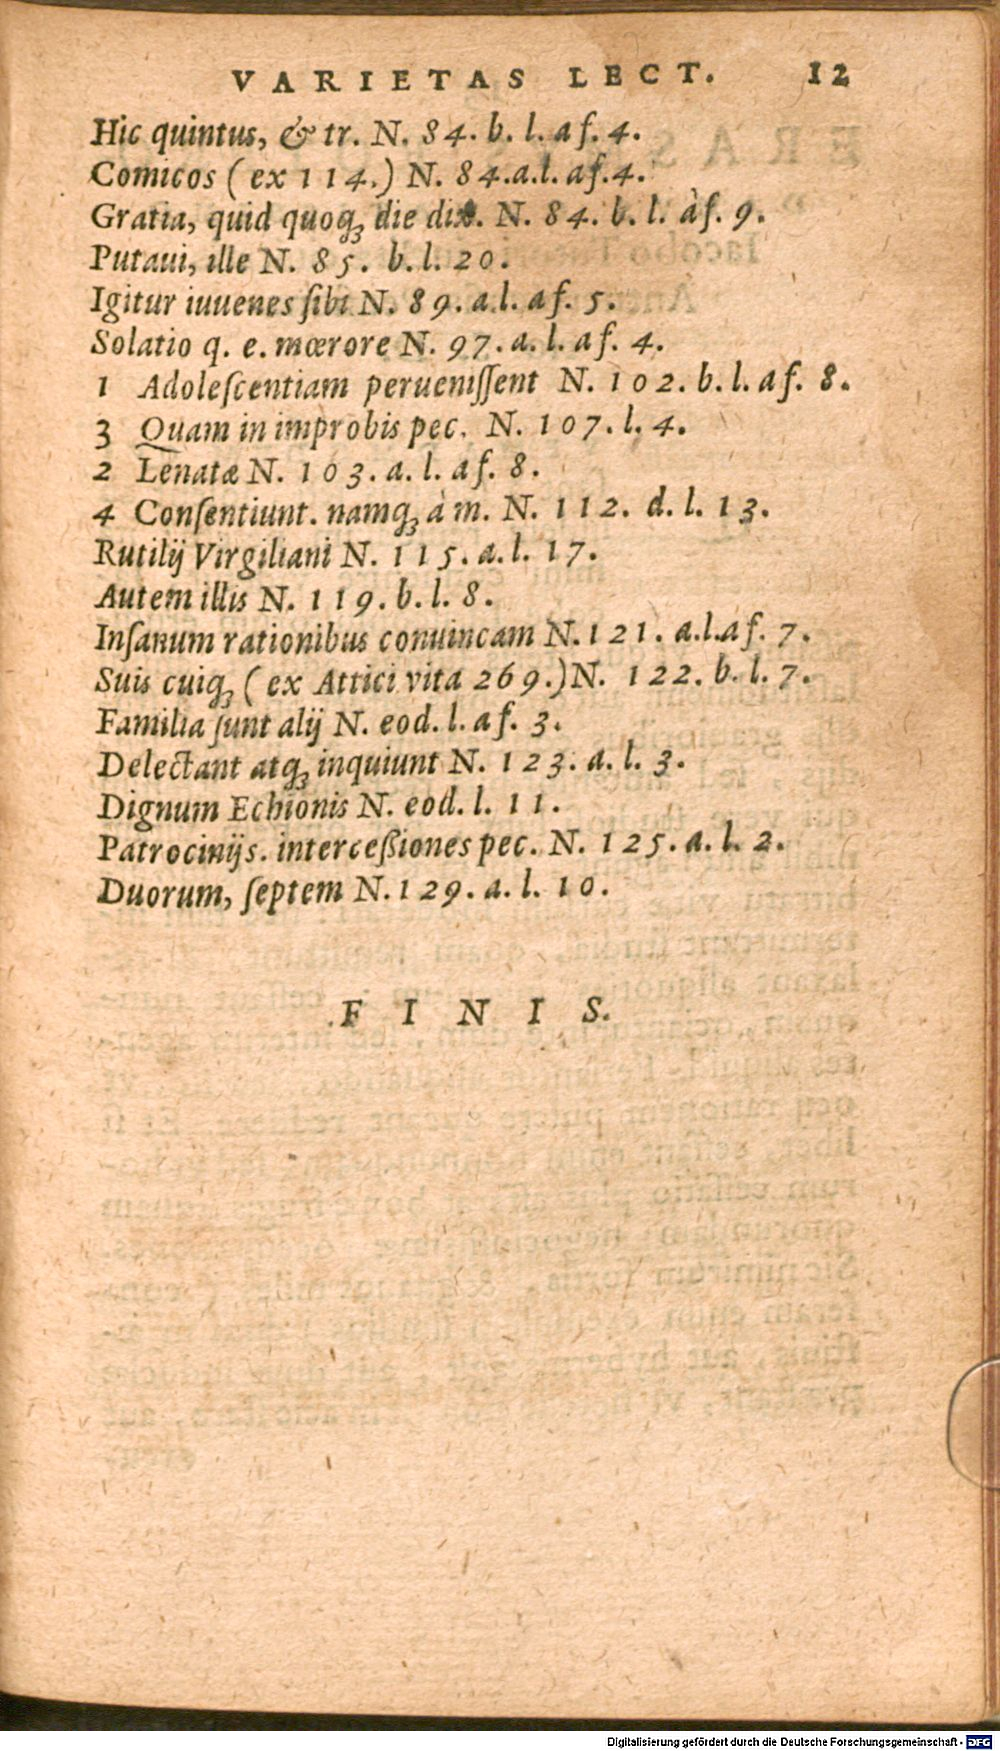 VARIETAS LECT. 12
Hic quintus, & tr. N. 84. b. l. af. 4.
Comicos (ex 114.) N. 84.a.l. af.4.
Gratia, quid quoqꝫ die dix. N. 84. b. l. àf. 9.
Putaui, ille N. 85. b. l. 20.
Igitur iuuenes ſibi N. 89. a.l. af. 5.
Solatio q. e. mœrore N. 97. a. l. af. 4.
1 Adoleſcentiam perueniſſent N. 102. b. l. af. 8.
3 Quam in improbis pec. N. 107. l. 4.
2 Lenatæ N. 103. a. l. af. 8.
4 Conſentiunt. namqꝫ à m. N. 112. d. l. 13.
Rutilij Virgiliani N. 115. a. l. 17.
Autem illis N. 119. b. l. 8.
Inſanum rationibus conuincam N. 121. a.l.af. 7.
Suis cuiqꝫ (ex Attici vita 269.) N. 122. b. l. 7.
Familia ſunt alij N. eod. l. af. 3.
Delectant atqꝫ inquiunt N. 123. a. l. 3.
Dignum Echionis N. eod. l. 11.
Patrocinijs. interceßiones pec. N. 125. a. l. 2.
Duorum, ſeptem N. 129. a. l. 10.
FINIS.
Digitalisierung gefördert durch die Deutsche Forschungsgemeinschaft - DFG